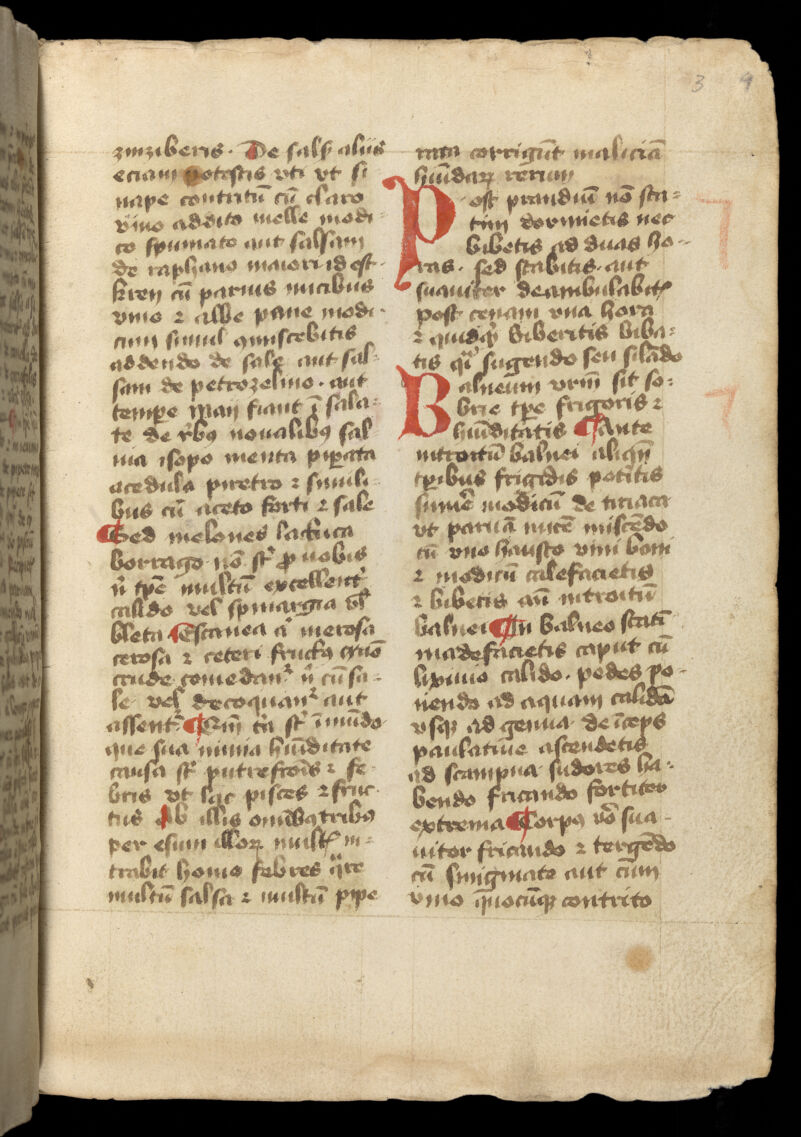 3 9
zinziberis. De sals̄ aliis
eciam potestis vti vt si
nape contritū cū claro
vino addito melle modi-
co spumato aut salsam
de raphano maiori id est
kren cū paruis nucibus
vino ⁊ albe pane modi-
cum simul qmiscebitis
addendo de sale aut sal-
sam de petrozelino. aut
tempe maij fiant ī sala-
te de rbꝰ noualibꝰ sal
uia isopo menta pipata
acedula piretro ⁊ simili-
bus cū aceto forti ⁊ sale
Sed melones lactuca
borrago nō st͛ ꝓ uobis
n̄ tpē multū excellent͛
calido vel spinargia vl̄
bleta Escanea q͛ merosa
cerosa ⁊ ceteri fructꝰ
crude comedan͛ n̄ cū sa-
le vel decoquan͛ aut
assent͛ Qm̄ tā st͛ ī mūdo
que sua nimia hūiditate
causa st͛ putrefcōis ⁊ fe-
bris vt lac pisces ⁊ fruc-
tus Ab illis omībꝰ tribꝰ
per esum illoꝝ mult͛ in-
trabit homo febres qre
multū salsa ⁊ multū pipe
rata corrigūt maliciā
hūidaꝝ rerum
Post prandiū nō sta-
tim dormietis nec
bibetis ad duas ho-
ras. sed stabitis aut
suauiter deambulabit͛
post cenam vna hora
⁊ quidqͥ biberitis biba-
tis qͥ sugendo seu silādo
Balneum vrm̄ sit so-
brie tpe frigoris ⁊
hūiditatis Ante
introitū balnei aliqn̄
tpibus frigidis potitis
sumē modicū de tiriaca
vt paruā nucē miscēdo
cū vno hausto vini boni
⁊ modicū calefacietis
⁊ bibetis an̄ introitū
balnei In balneo statī
madefacietis caput cū
lixiuio calido. pedes po-
nendo ad aquam calidā
vsqꝫ ad genua deīceps
paulatiue ascendetis
ad scampna sudores ha-
bendo fricando fortiter
extrema Corpꝰ vō sua-
uiter fricando ⁊ tergēdo
cū smigmate aut cum
vino quocūqꝫ contrito